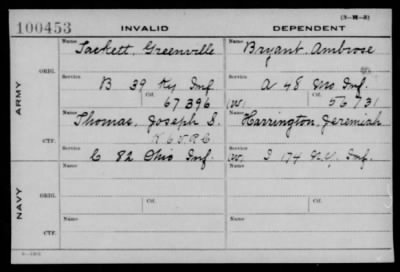 (3-M-2)
100453 INVALID DEPENDENT
Name Name
Sackett, Greenville Bryant, Ambrose
ARMY
ORIG.
Service Service
B 39 Ky Inf. A 48 Mo Inf.
Ctf. Ctf.
67396 (W) 56731
Name Name
Thomas, Joseph S. Harrington, Jeremiah
CTF.
Service Service
C 82 Ohio Inf. (W) I 174 N.Y. Inf.
NAVY
Name Name
ORIG.
Service Ctf. Service Ctf.
Name Name
CTF.
Service Service